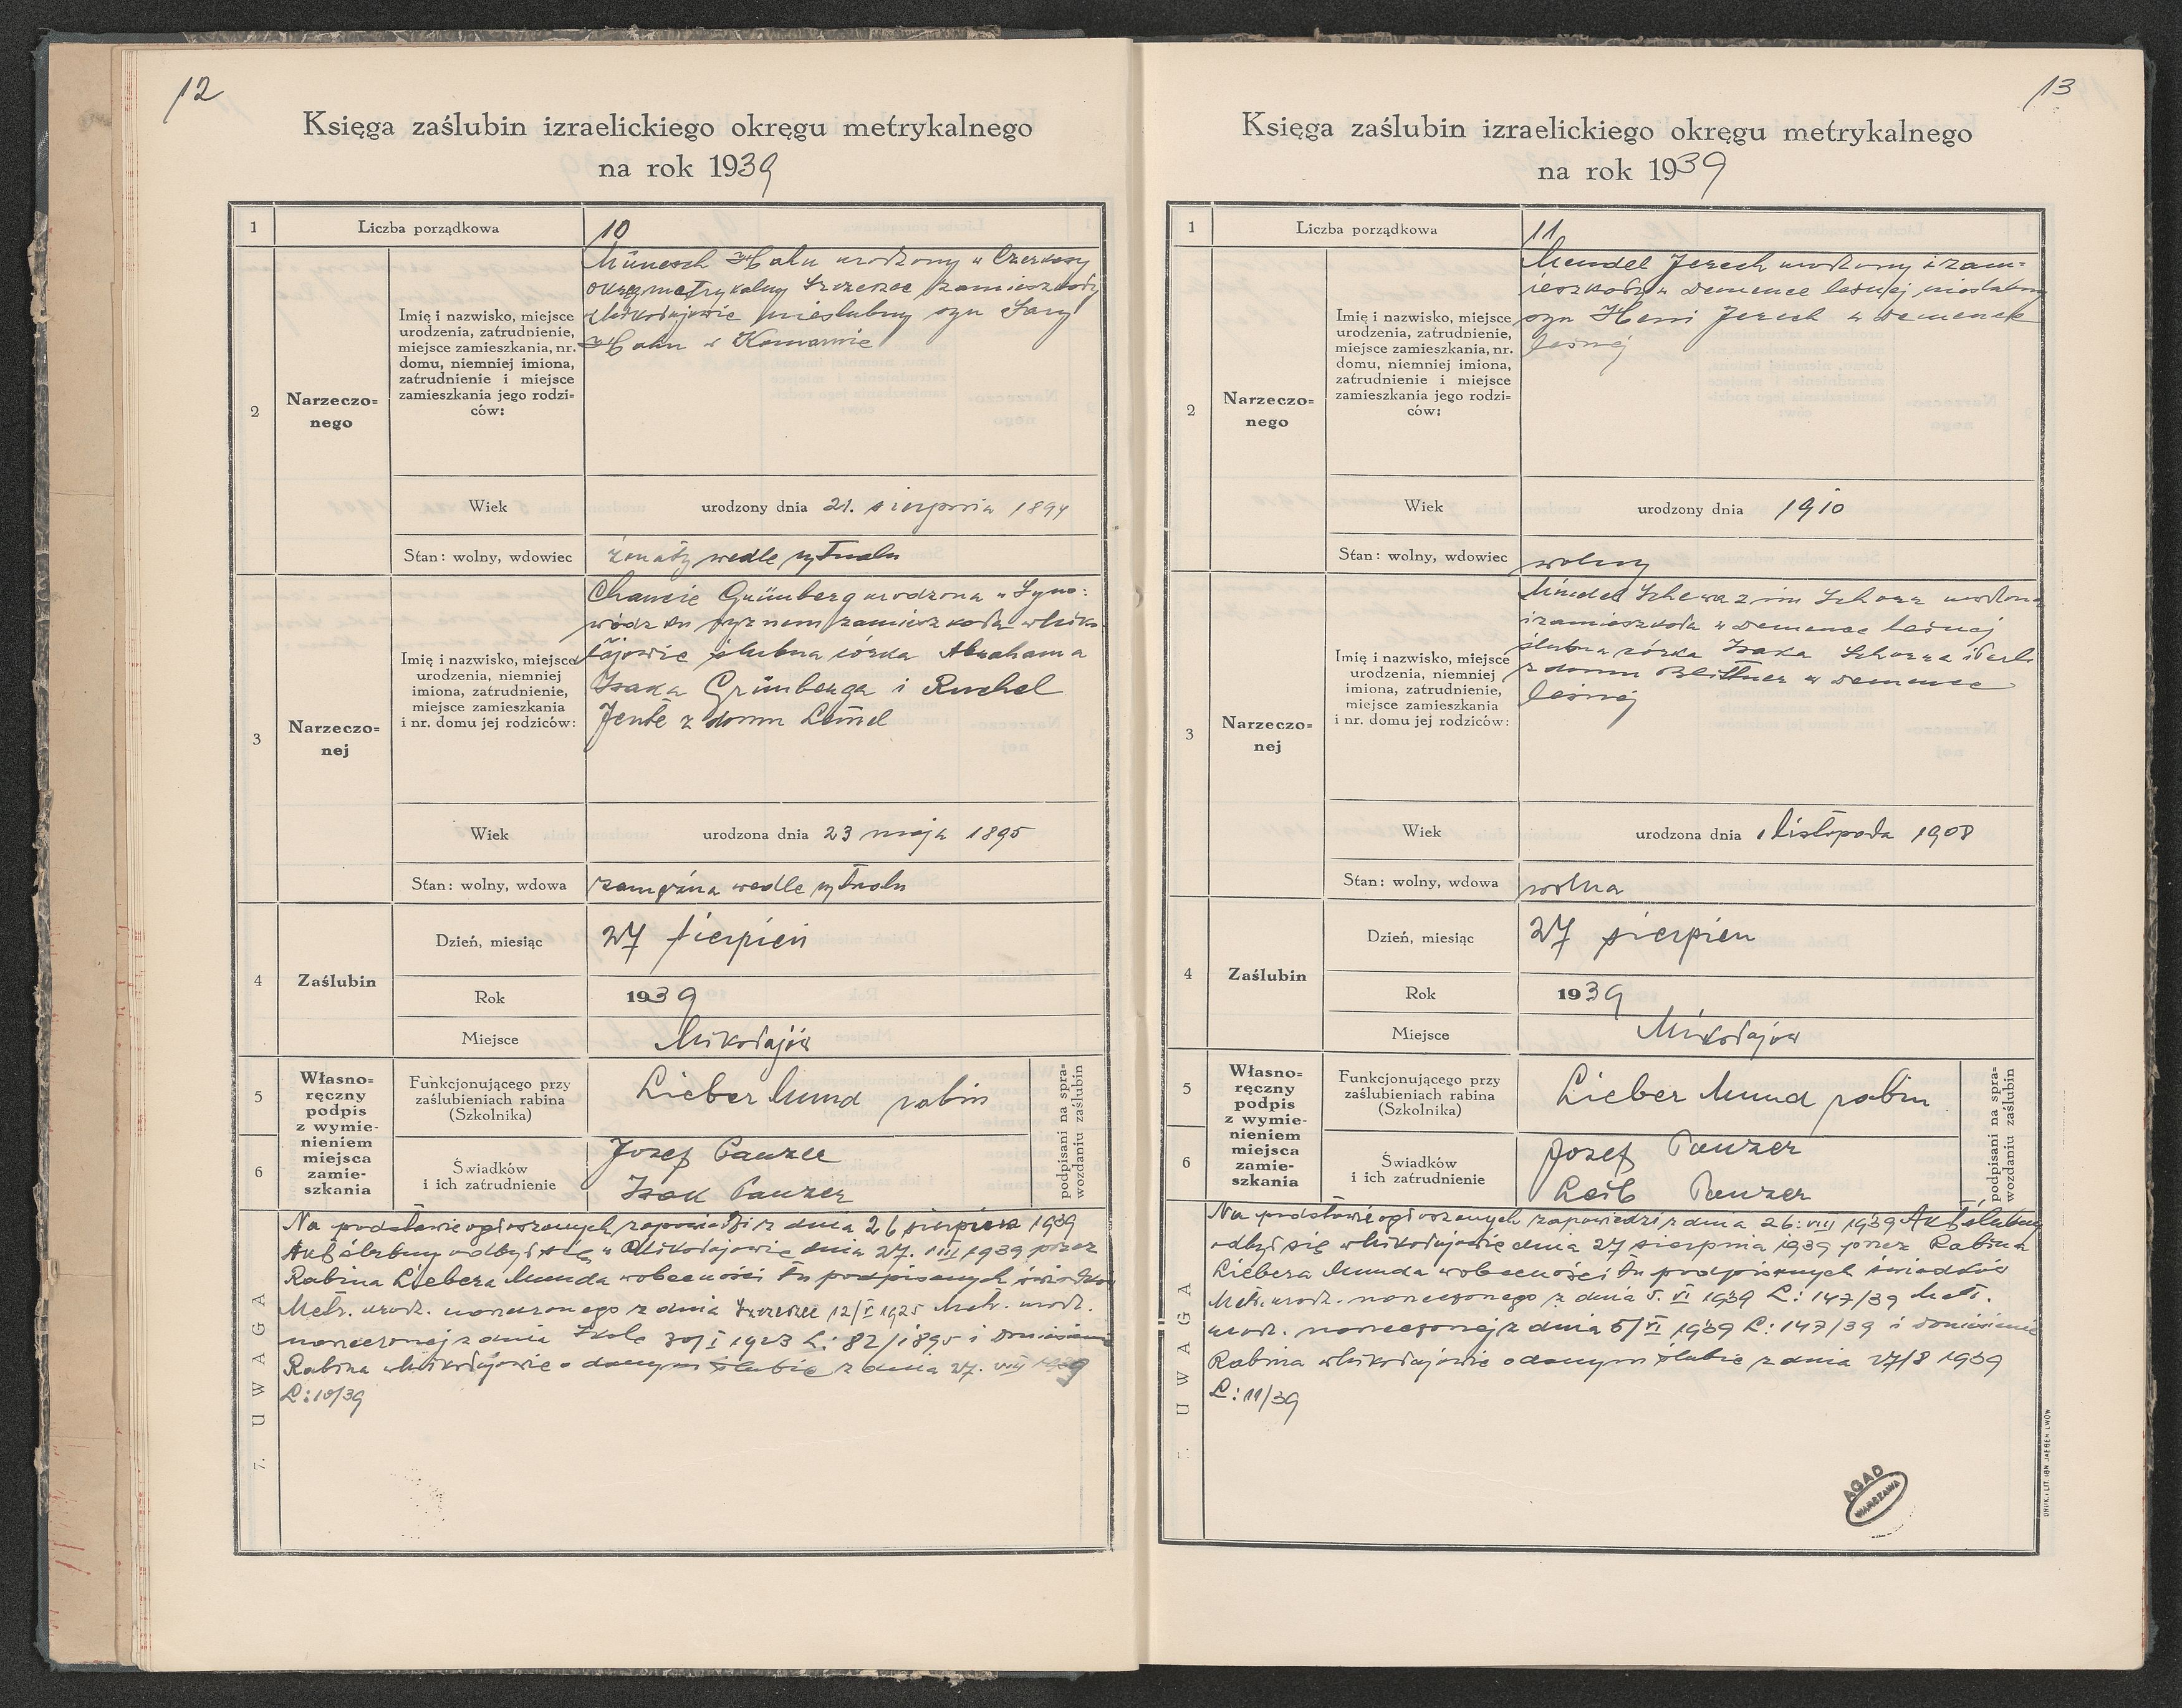 12
Księga zaślubin izraelickiego okręgu metrykalnego
na rok 1939
1 Liczba porządkowa 10
2 Narzeczo=
nego
Imię i nazwisko, miejsce
urodzenia, zatrudnienie,
miejsce zamieszkania, nr.
domu, niemniej imiona,
zatrudnienie i miejsce
zamieszkania jego rodzi=
ców:
Münesch Hahn urodzony w Czerkasy
okręg metrykalny Szczerzec zamieszkały
w Mikołajowie nieślubny syn Sary
Hahn w Komarnie
Wiek urodzony dnia 21. sierpnia 1894
Stan: wolny, wdowiec żonaty wedle rytuału
3 Narzeczo=
nej
Imię i nazwisko, miejsce
urodzenia, niemniej
imiona, zatrudnienie,
miejsce zamieszkania
i nr. domu jej rodziców:
Chancie Grünberg urodzona w Syno:
wódzku wyżnem zamieszkała w Miko
łajowie ślubna córka Abrahama
Isaka Grünberga i Ruchel
Jente z domu
Wiek urodzona dnia 23 maja 1895
Stan: wolny, wdowa zamężna wedle rytuału
4 Zaślubin
Dzień, miesiąc 27 sierpień
Rok 1939
Miejsce Mikołajów
5
6
Własno=
ręczny
podpis
z wymie-
nieniem
miejsca
zamie-
szkania
Funkcjonującego przy
zaślubieniach rabina
(Szkolnika)
Lieber Mund rabin
Świadków
i ich zatrudnienie
Jozef Panzer
Isak Panzer
podpisani na spra-
wozdaniu zaślubin
7. UWAGA
Na podstawie ogłoszonych zapowiedzi z dnia 26 sierpnia 1939
Akt ślubny odbył się w Mikołajowie dnia 27. VIII 1939 przez
Rabina Liebera Munda w obecności tu podpisanych świadków
Metr. urodz. narzeczonego z dnia Szczerzec 12/V 1925 Metr. urodz.
narzeczonej z dnia Skole 30/I 1923 L: 82/1895 i doniesienie
Rabina w Mikołajowie o danym ślubie z dnia 27. VIII 1939
L: 10/39
13
Księga zaślubin izraelickiego okręgu metrykalnego
na rok 1939
1 Liczba porządkowa 11
2 Narzeczo=
nego
Imię i nazwisko, miejsce
urodzenia, zatrudnienie,
miejsce zamieszkania, nr.
domu, niemniej imiona,
zatrudnienie i miejsce
zamieszkania jego rodzi=
ców:
Mendel Jerech urodzony i zam=
ieszkały w Demence leśnej nieślubny
syn Heni Jerech w Demence
leśnej
Wiek urodzony dnia 1910
Stan: wolny, wdowiec wolny
3 Narzeczo=
nej
Imię i nazwisko, miejsce
urodzenia, niemniej
imiona, zatrudnienie,
miejsce zamieszkania
i nr. domu jej rodziców:
Mindel Schorr urodzona
i zamieszkała w Demence leśnej
ślubna córka Isaka Schorra i Perli
z domu Blittner w Demence
leśnej
Wiek urodzona dnia 1 listopada 1908
Stan: wolny, wdowa wolna
4 Zaślubin
Dzień, miesiąc 27 sierpień
Rok 1939
Miejsce Mikołajów
5
6
Własno=
ręczny
podpis
z wymie-
nieniem
miejsca
zamie-
szkania
Funkcjonującego przy
zaślubieniach rabina
(Szkolnika)
Lieber Mund rabin
Świadków
i ich zatrudnienie
Jozef Panzer
Leib Panzer
podpisani na spra-
wozdaniu zaślubin
7. UWAGA
Na podstawie ogłoszonych zapowiedzi z dnia 26. VIII 1939 Akt ślubny
odbył się w Mikołajowie dnia 27 sierpnia 1939 przez Rabina
Liebera Munda w obecności tu podpisanych świadków
Metr. urodz. narzeczonego z dnia 5. VI 1939 L: 147/39 Metr.
urodz. narzeczonej z dnia 5/VI 1939 L: 147/39 i doniesienie
Rabina w Mikołajowie o danym ślubie z dnia 27/8 1939
L: 11/39
AGAD
WARSZAWA